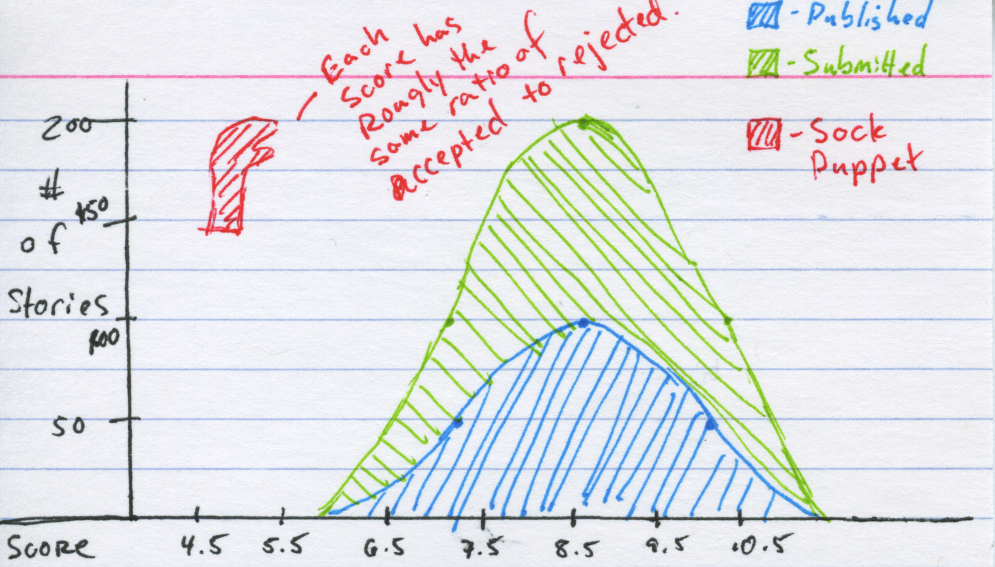 Each
score has
Rougly the
same ratio of
accepted to rejected.
- Published
- Submitted
- Sock
Puppet
200
#
150
of
Stories
100
50
Score 4.5 5.5 6.5 7.5 8.5 9.5 10.5